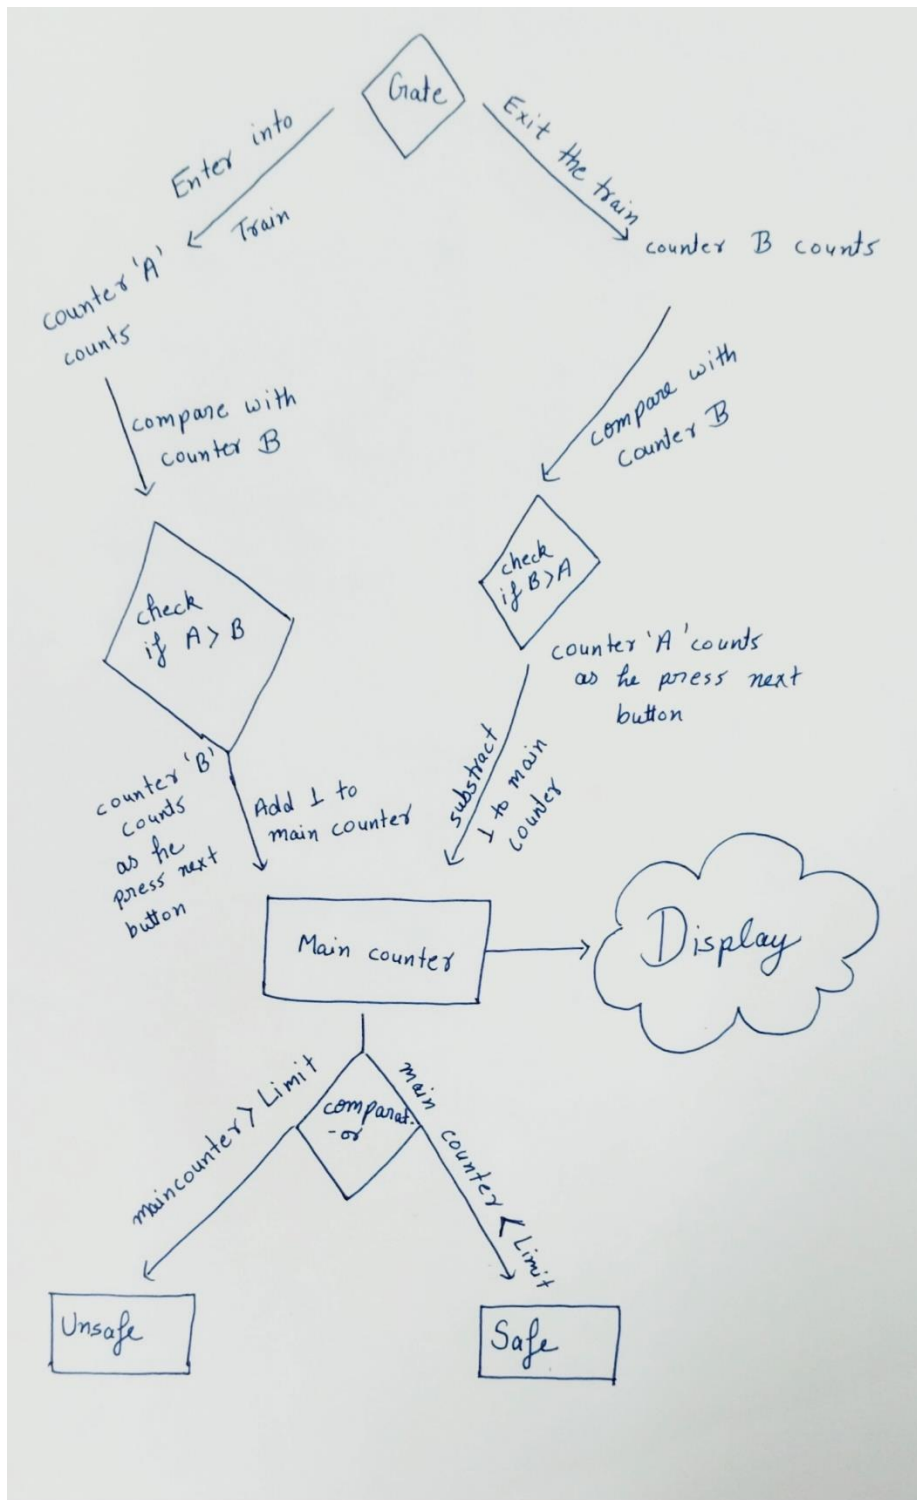 Gate
Enter into
Train
Exit the train
counter 'A'
counts
counter B counts
compare with
counter B
compare with
counter B
check
if A > B
check
if B > A
counter 'B'
counts
as he
press next
button
Add 1 to
main counter
substract
1 to main
counter
counter 'A' counts
as he press next
button
Main counter
Display
comparat
-or
maincounter > Limit
main counter < Limit
Unsafe
Safe